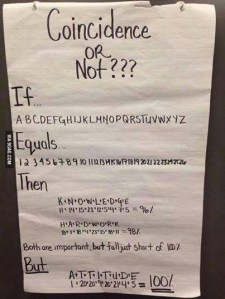 Coincidence
OR
Not???
If...
ABCDEFGHIJKLMNOPQRSTUVWXYZ
Equals...
1 2 3 4 5 6 7 8 9 10 11 12 13 14 15 16 17 18 19 20 21 22 23 24 25 26
Then
K+N+O+W+L+E+D+G+E
= 96%
H+A+R+D+W+O+R+K
= 98%
Both are important, but fall just short of 100%
But
A+T+T+I+T+U+D+E
= 100%
VIA 9GAG.COM